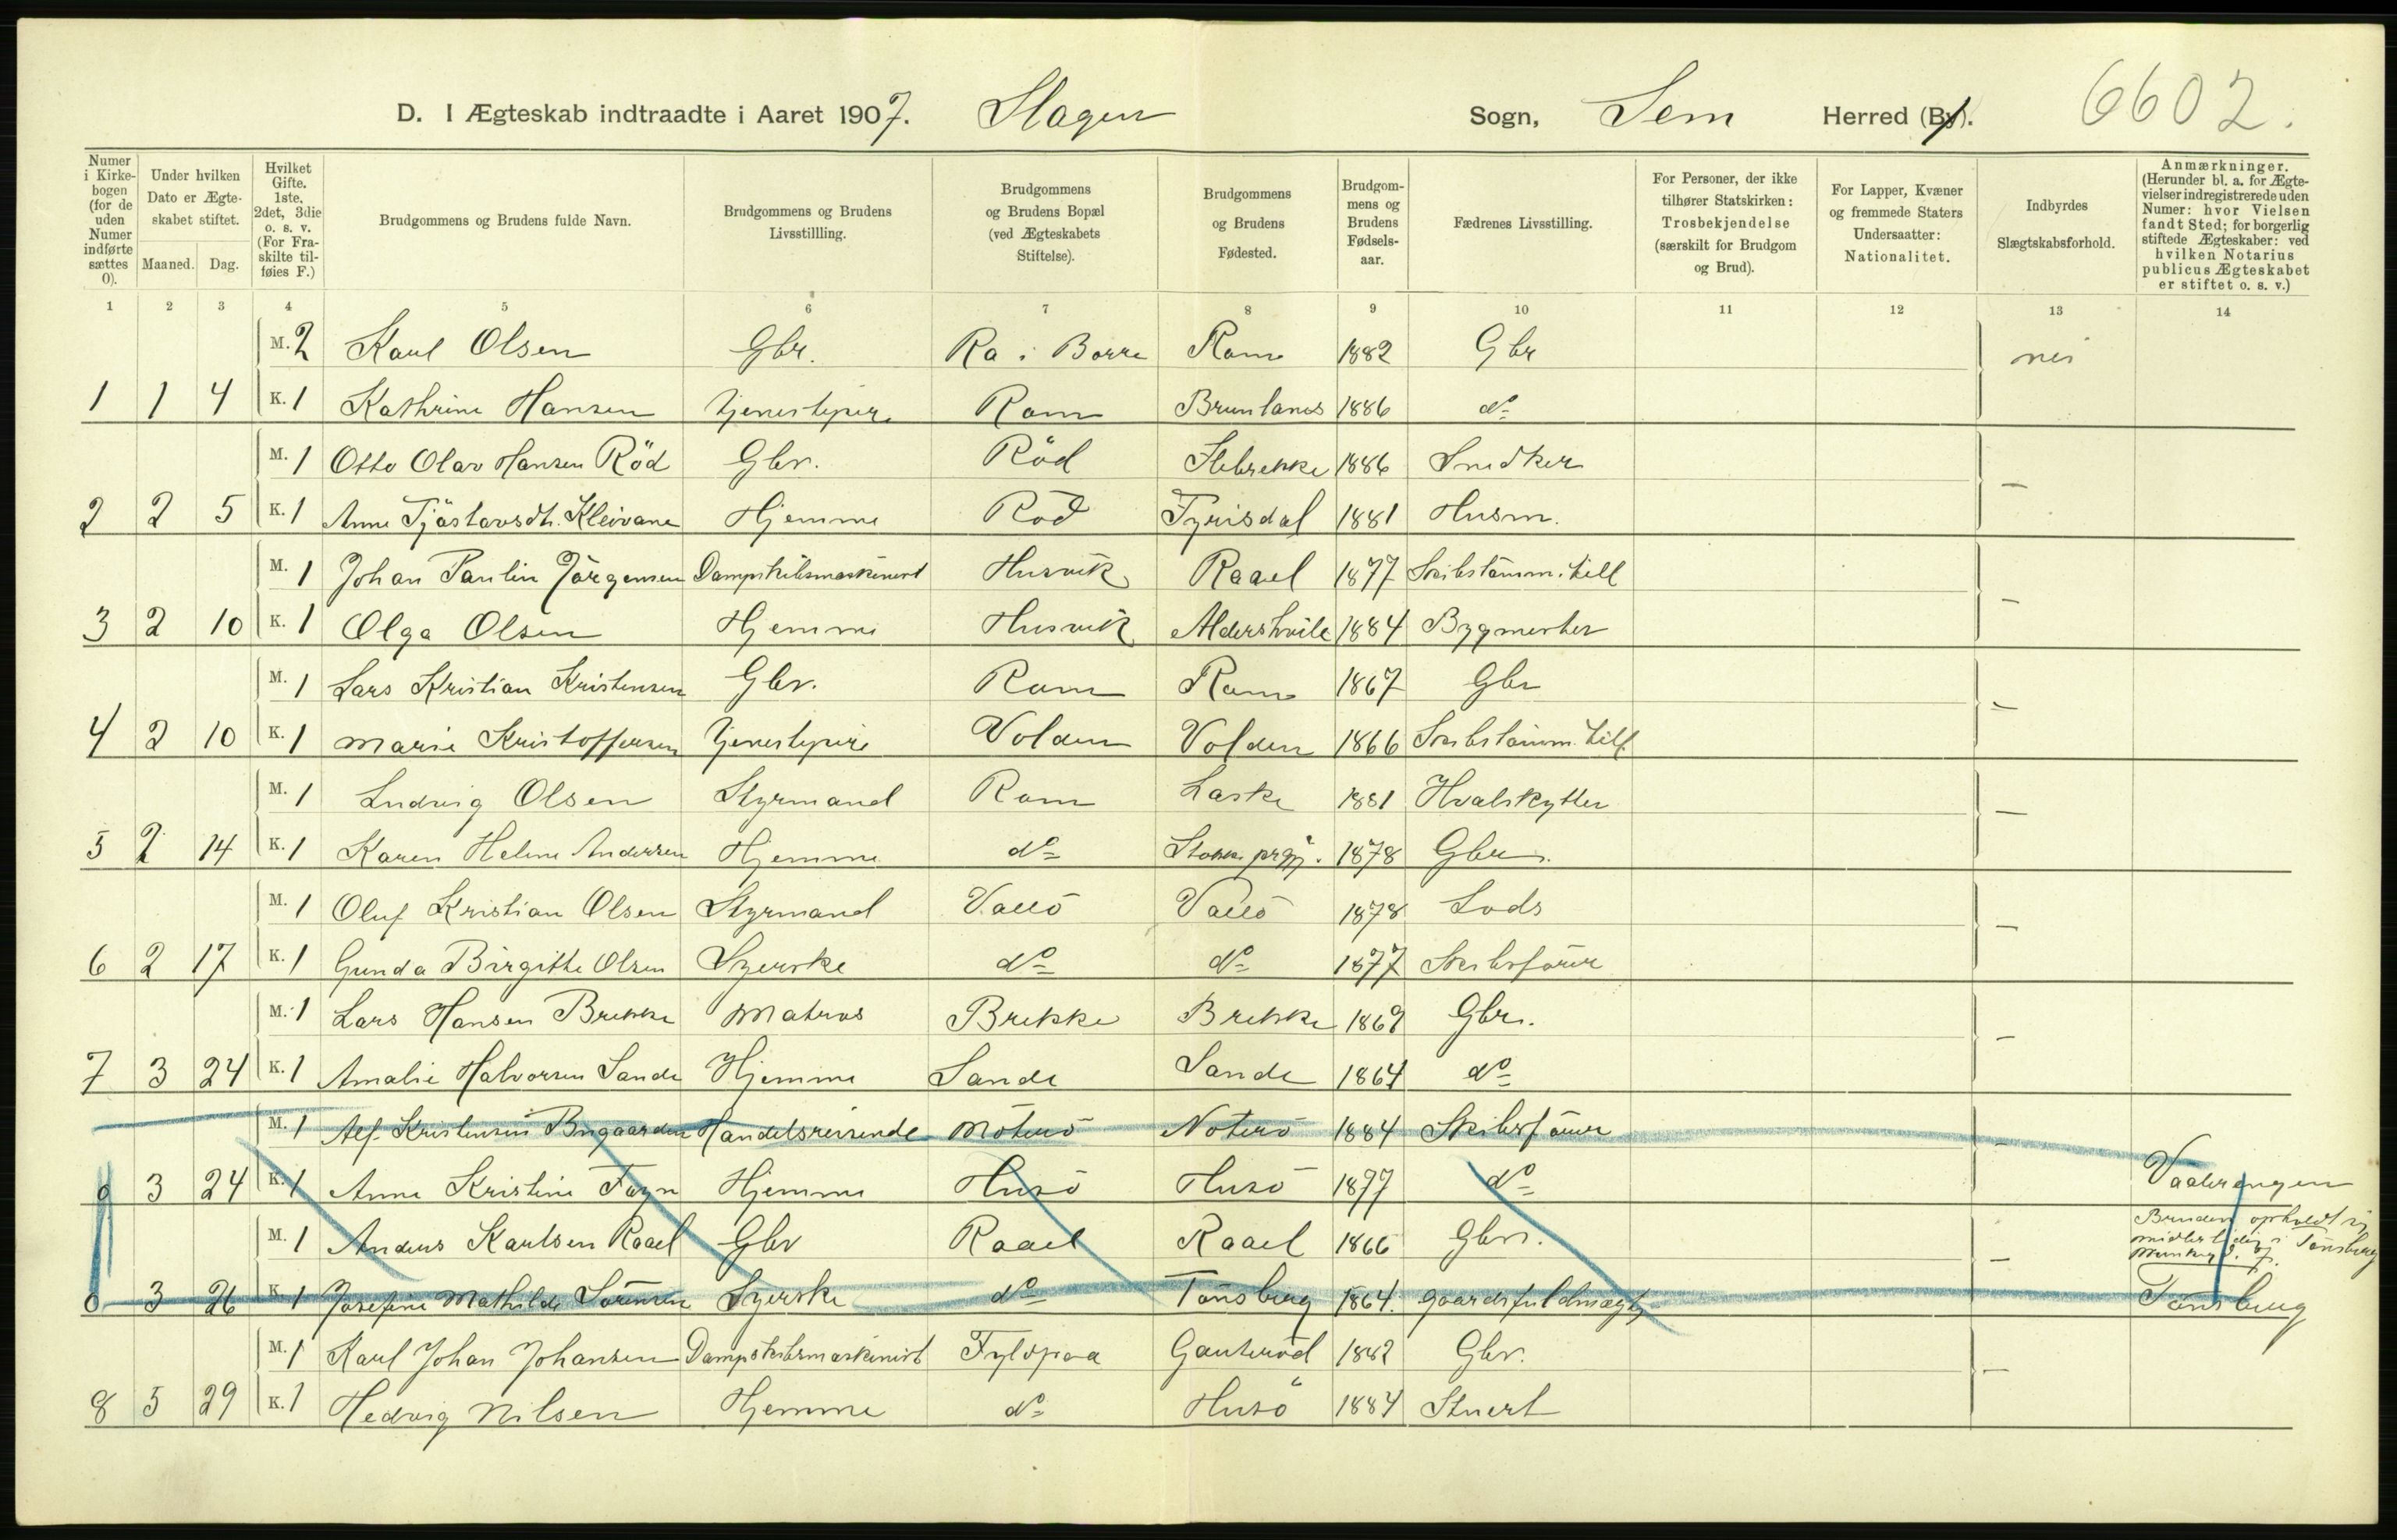 D. I Ægteskab indtraadte i Aaret 1907. Slagen Sogn, Sem Herred (By). 6602.
Numer i Kirkebogen (for de uden Numer indførte sættes 0).
Under hvilken Dato er Ægteskabet stiftet.
Maaned. Dag.
Hvilket Gifte. 1ste, 2det, 3die o. s. v. (For Fraskilte tilføies F.)
Brudgommens og Brudens fulde Navn.
Brudgommens og Brudens Livsstillling.
Brudgommens og Brudens Bopæl (ved Ægteskabets Stiftelse).
Brudgommens og Brudens Fødested.
Brudgommens og Brudens Fødselsaar.
Fædrenes Livsstilling.
For Personer, der ikke tilhører Statskirken: Trosbekjendelse (særskilt for Brudgom og Brud).
For Lapper, Kvæner og fremmede Staters Undersaatter: Nationalitet.
Indbyrdes Slægtskabsforhold.
Anmærkninger. (Herunder bl. a. for Ægtevielser indregistrerede uden Numer: hvor Vielsen fandt Sted; for borgerlig stiftede Ægteskaber: ved hvilken Notarius publicus Ægteskabet er stiftet o. s. v.)
1 2 3 4 5 6 7 8 9 10 11 12 13 14
M. 2 Karl Olsen Gbr. Ra i Borre Rom 1882 Gbr nei
1 1 4 K. 1 Kathrine Hansen tjenestepige Rom Brunlanes 1886 do
M. 1 Otto Olav Hansen Röd Gbr. Röd Slebrekke 1886 Snedker
2 2 5 K. 1 Anne Tjöstavsdt. Kleivane Hjemme Röd Fyrisdal 1881 Husm. —
M. 1 Johan Paulin Jörgensen Dampskibsmaskinist Husvik Raael 1877 Skibstömm. till
3 2 10 K. 1 Olga Olsen Hjemme Husvik Aldershvile 1884 Bygmester —
M. 1 Lars Kristian Kristensen Gbr. Rom Rom 1867 Gbr
4 2 10 K. 1 Marie Kristoffersen tjenestepige Volden Volden 1866 Skibstömm. till —
M. 1 Ludvig Olsen Styrmand Rom Laske 1881 Hvalskytter
5 2 14 K. 1 Karen Helene Andersen Hjemme do Stokke prgj. 1878 Gbr. —
M. 1 Oluf Kristian Olsen Styrmand Vallö Vallö 1878 Lods
6 2 17 K. 1 Gunda Birgitte Olsen Syerske do do 1877 Skibsförer —
M. 1 Lars Hansen Brekke Matros Brekke Brekke 1869 Gbr.
7 3 24 K. 1 Amalie Halvorsen Sande Hjemme Sande Sande 1864 do —
M. 1 Alf Kristensen Bugaarden Handelsreisende Nöterö Nöterö 1884 Skibsförer
0 3 24 K. 1 Anna Kristine Fayn Hjemme Husö Husö 1877 do — Vaalerengen
M. 1 Anders Karlsen Raael Gbr Raael Raael 1866 Gbr. Bruden opholdt sig midlertidig i Tönsberg
0 3 26 K. 1 Josefine Mathilde Sörensen Syerske do Tönsberg 1864. gaardsfuldmægtig — Tönsberg
M. 1 Karl Johan Johansen Dampskibsmaskinist Fylspaa Gauteröd 1882 Gbr.
8 5 29 K. 1 Hedvig Nilsen Hjemme do Husö 1884 Stuert —